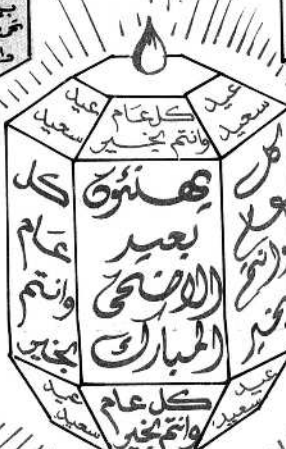 عيد
سعيد
كل عام
وانتم بخير
عيد
سعيد
كل
عام
وانتم
بخير
يهنئون
بعيد
الاضحى
المبارك
كل
عام
وانتم
بخير
عيد
سعيد
كل عام
وانتم بخير
عيد
سعيد